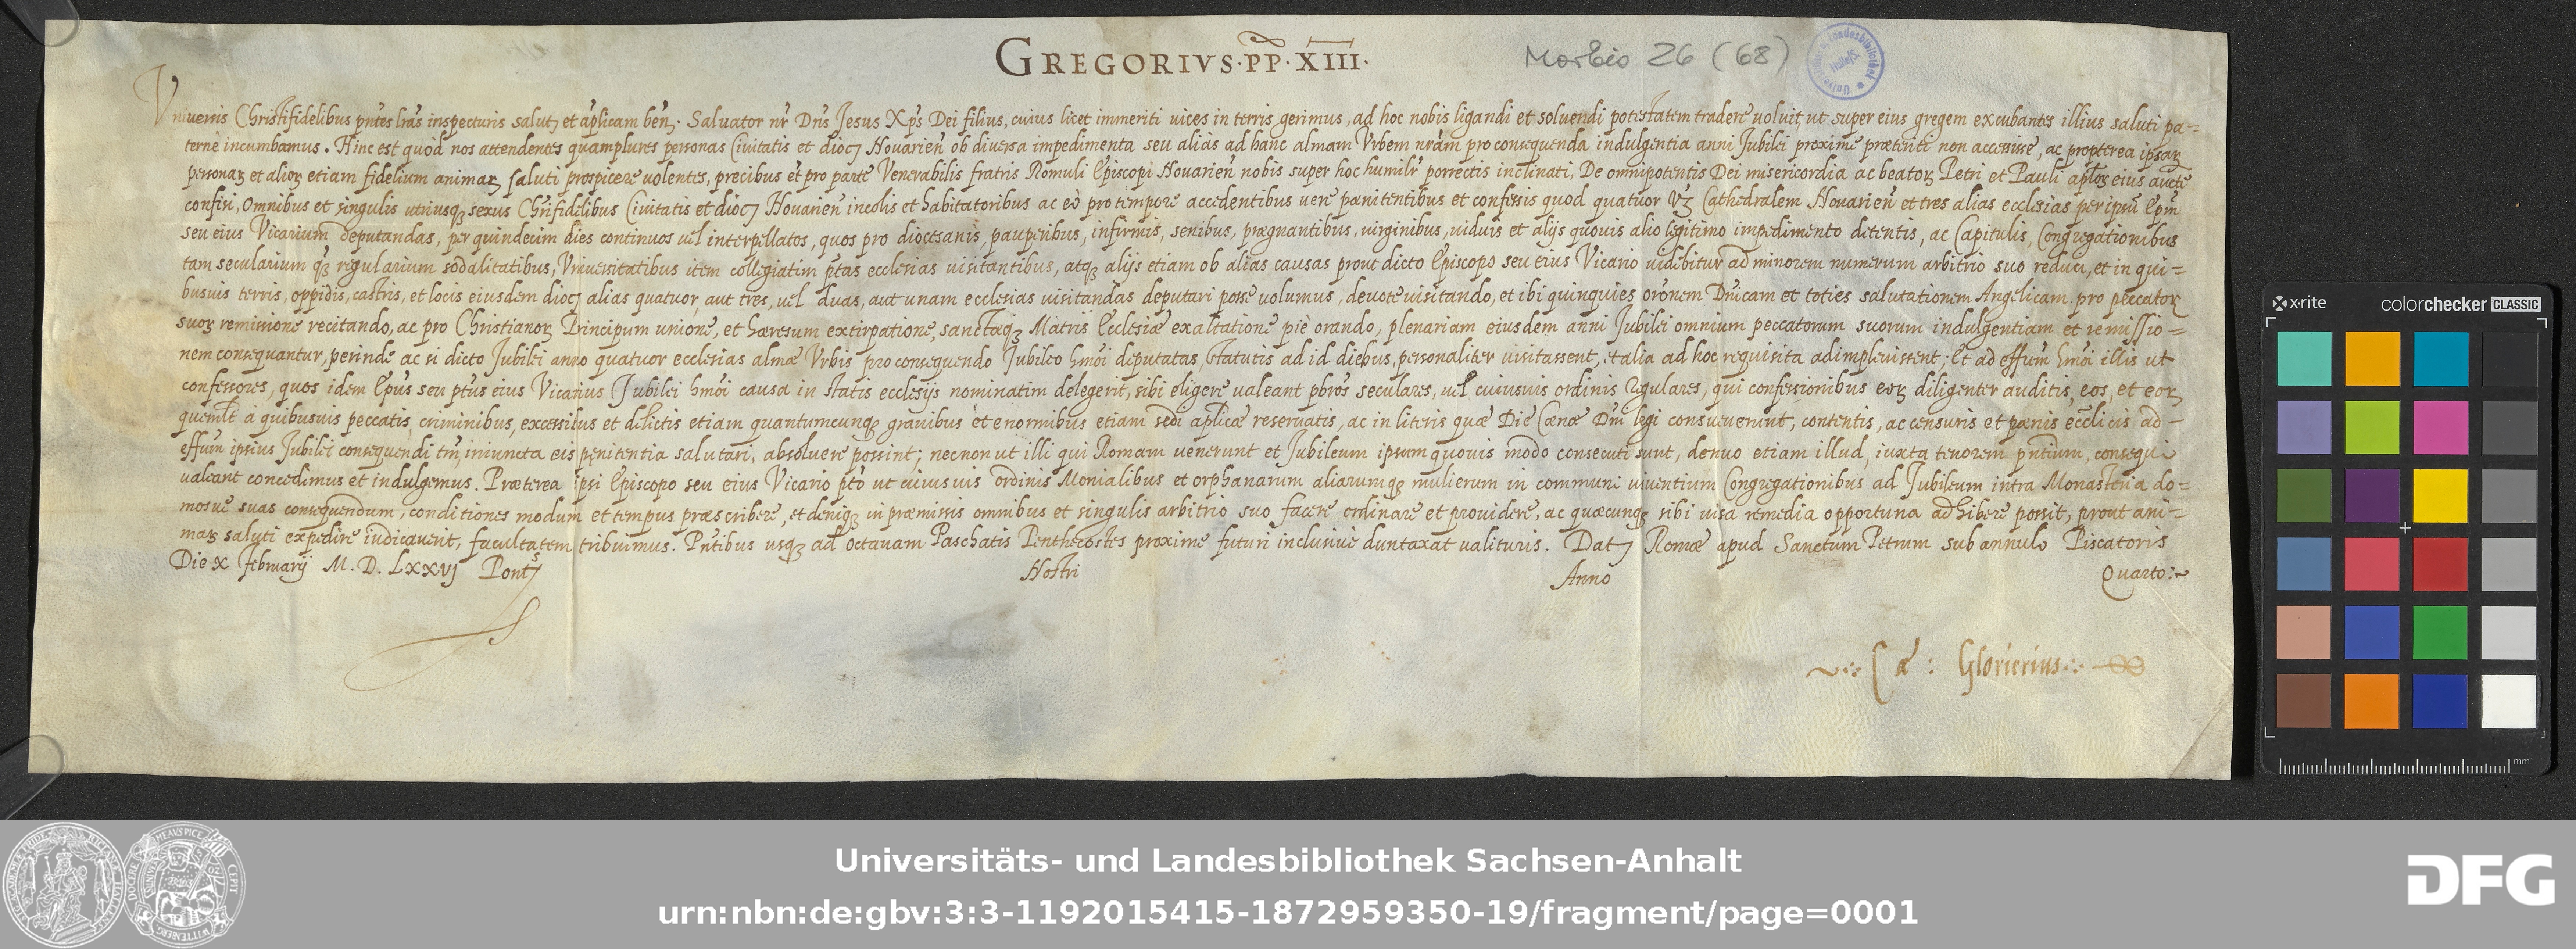 GREGORIVS·PP·XIII·
Morbio 26 (68)
Vniuersis Christifidelibus pñtes lrãs inspecturis salutȝ et aplicam beñ. Saluator nr̃ Dñs Jesus Xps̃ Dei filius, cuius licet immeriti uices in terris gerimus, ad hoc nobis ligandi et soluendi potestatem tradere uoluit, ut super eius gregem excubantes illius saluti pa=
terne incumbamus. Hinc est quod nos attendentes quamplures personas Ciuitatis et diocȝ Nouarieñ ob diuersa impedimenta seu alias ad hanc almam Vrbem nrãm pro consequenda indulgentia anni Jubilei proxime præteriti non accessisse, ac propterea ipsaꝝ
personaꝝ et alioꝝ etiam fidelium animaꝝ saluti prospicere uolentes, precibus et pro parte Venerabilis fratris Romuli Episcopi Nouarieñ nobis super hoc humilr̃ porrectis inclinati, De omnipotentis Dei misericordia ac beatoꝝ Petri et Pauli aplõꝝ eius aucte
confisi, omnibus et singulis utriusqȝ sexus Chrifidelibus Ciuitatis et diocȝ Nouarieñ incolis et habitatoribus ac eò pro tempore accedentibus uere pænitentibus et confessis quod quatuor uȝ Cathedralem Nouarieñ et tres alias ecclesias per ipsũ Epũm
seu eius Vicarium deputandas, per quindecim dies continuos uel interpellatos, quos pro diocesanis, pauperibus, infirmis, senibus, prægnantibus, uirginibus, uiduis et alijs quouis alio legitimo impedimento detentis, ac Capitulis, Congregationibus
tam secularium qȝ regularium sodalitatibus, Vniuersitatibus item collegiatim ptas ecclesias uisitantibus, atqȝ alijs etiam ob alias causas prout dicto Episcopo seu eius Vicario uidebitur ad minorem numerum arbitrio suo reduci, et in qui=
busuis terris, oppidis, castris, et locis eiusdem diocȝ alias quatuor, aut tres, uel duas, aut unam ecclesias uisitandas deputari posse uolumus, deuote uisitando, et ibi quinquies orõnem Dñicam et toties salutationem Angelicam pro peccatoꝝ
suoꝝ remissione recitando, ac pro Christianoꝝ Principum unione, et hæresum extirpatione, sanctæqȝ Matris Ecclesiæ exaltatione piè orando, plenariam eiusdem anni Jubilei omnium peccatorum suorum indulgentiam et remissio=
nem consequantur, perinde ac si dicto Jubilei anno quatuor ecclesias almæ Vrbis pro consequendo Jubileo hmõi deputatas, statutis ad id diebus, personaliter uisitassent, et alia ad hoc requisita adimpleuissent; Et ad effũm hmõi illis ut
confessores, quos idem Epũs seu ptũs eius Vicarius Jubilei hmõi causa in statis ecclesijs nominatim delegerit, sibi eligere ualeant pbrõs seculares, uel cuiusuis ordinis regulares, qui confessionibus eoꝝ diligenter auditis, eos, et eoꝝ
quemlt̃ à quibusuis peccatis, criminibus, excessibus et delictis etiam quantumcunqȝ grauibus et enormibus etiam sedi aplicæ reseruatis, ac in literis quæ Die Cænæ Dñi legi consueuerint, contentis, ac censuris et pænis eccl̃icis ad
effũm ipsius Jubilei consequendi tm̃, iniuncta eis pęnitentia salutari, absoluere possint; necnon ut illi qui Romam uenerunt et Jubileum ipsum quouis modo consecuti sunt, denuo etiam illud, iuxta tenorem pñtium, consequi
ualeant concedimus et indulgemus. Præterea ipsi Episcopo seu eius Vicario ptõ ut cuiusuis ordinis Monialibus et orphanarum aliarumqȝ mulierum in communi uiuentium Congregationibus ad Jubileum intra Monasteria do=
mosue suas consequendum, conditiones modum et tempus præscribere, et deniqȝ in præmissis omnibus et singulis arbitrio suo facere ordinare et prouidere, ac quæcunqȝ sibi uisa remedia opportuna adhibere possit, prout ani=
maꝝ saluti expedire iudicauerit, facultatem tribuimus. Pñtibus usqȝ ad octauam Paschatis Penthecostes proxime futuri inclusiuè duntaxat ualituris. Datȝ Romæ apud Sanctum Petrum sub annulo Piscatoris
Die X februarij M. D. LXXVJ Pontȝ Nostri Anno Quarto:~
Cæ: Glorierius
x·rite colorchecker CLASSIC
mm
Universitäts- und Landesbibliothek Sachsen-Anhalt
urn:nbn:de:gbv:3:3-1192015415-1872959350-19/fragment/page=0001
DFG